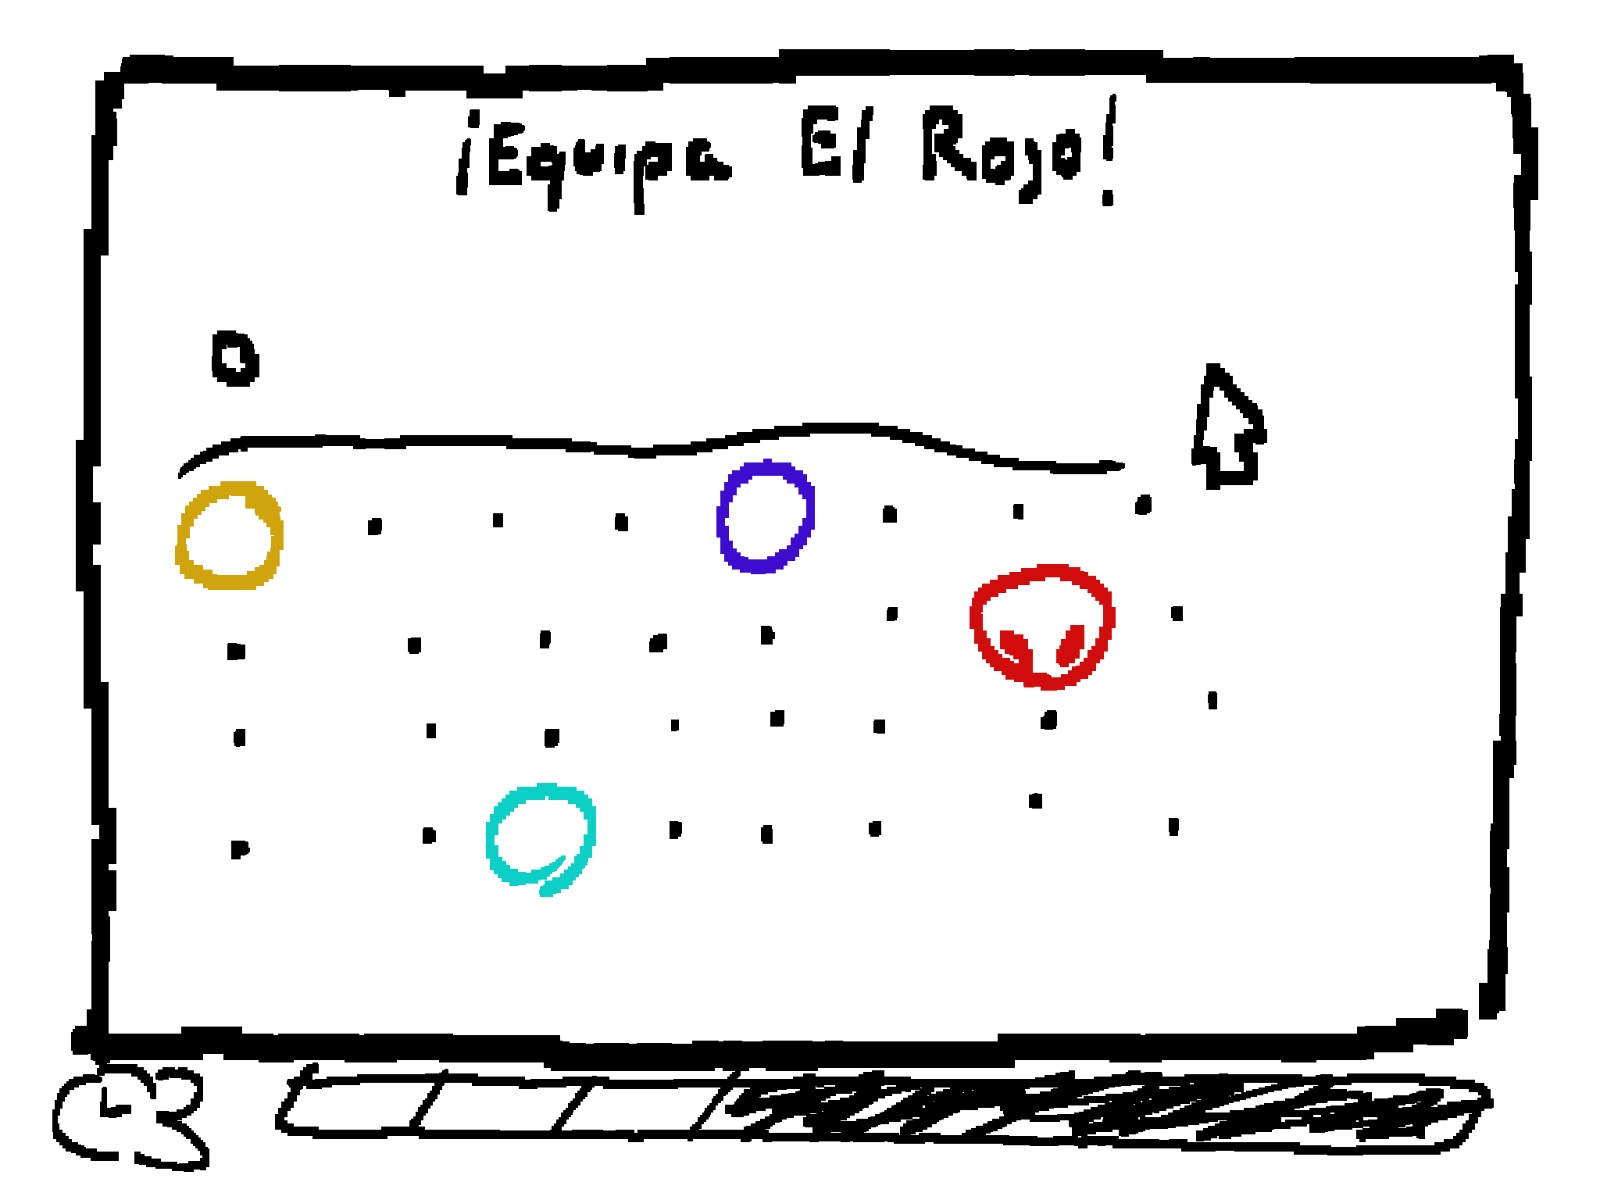 ¡Equipa El Rojo!
0
3